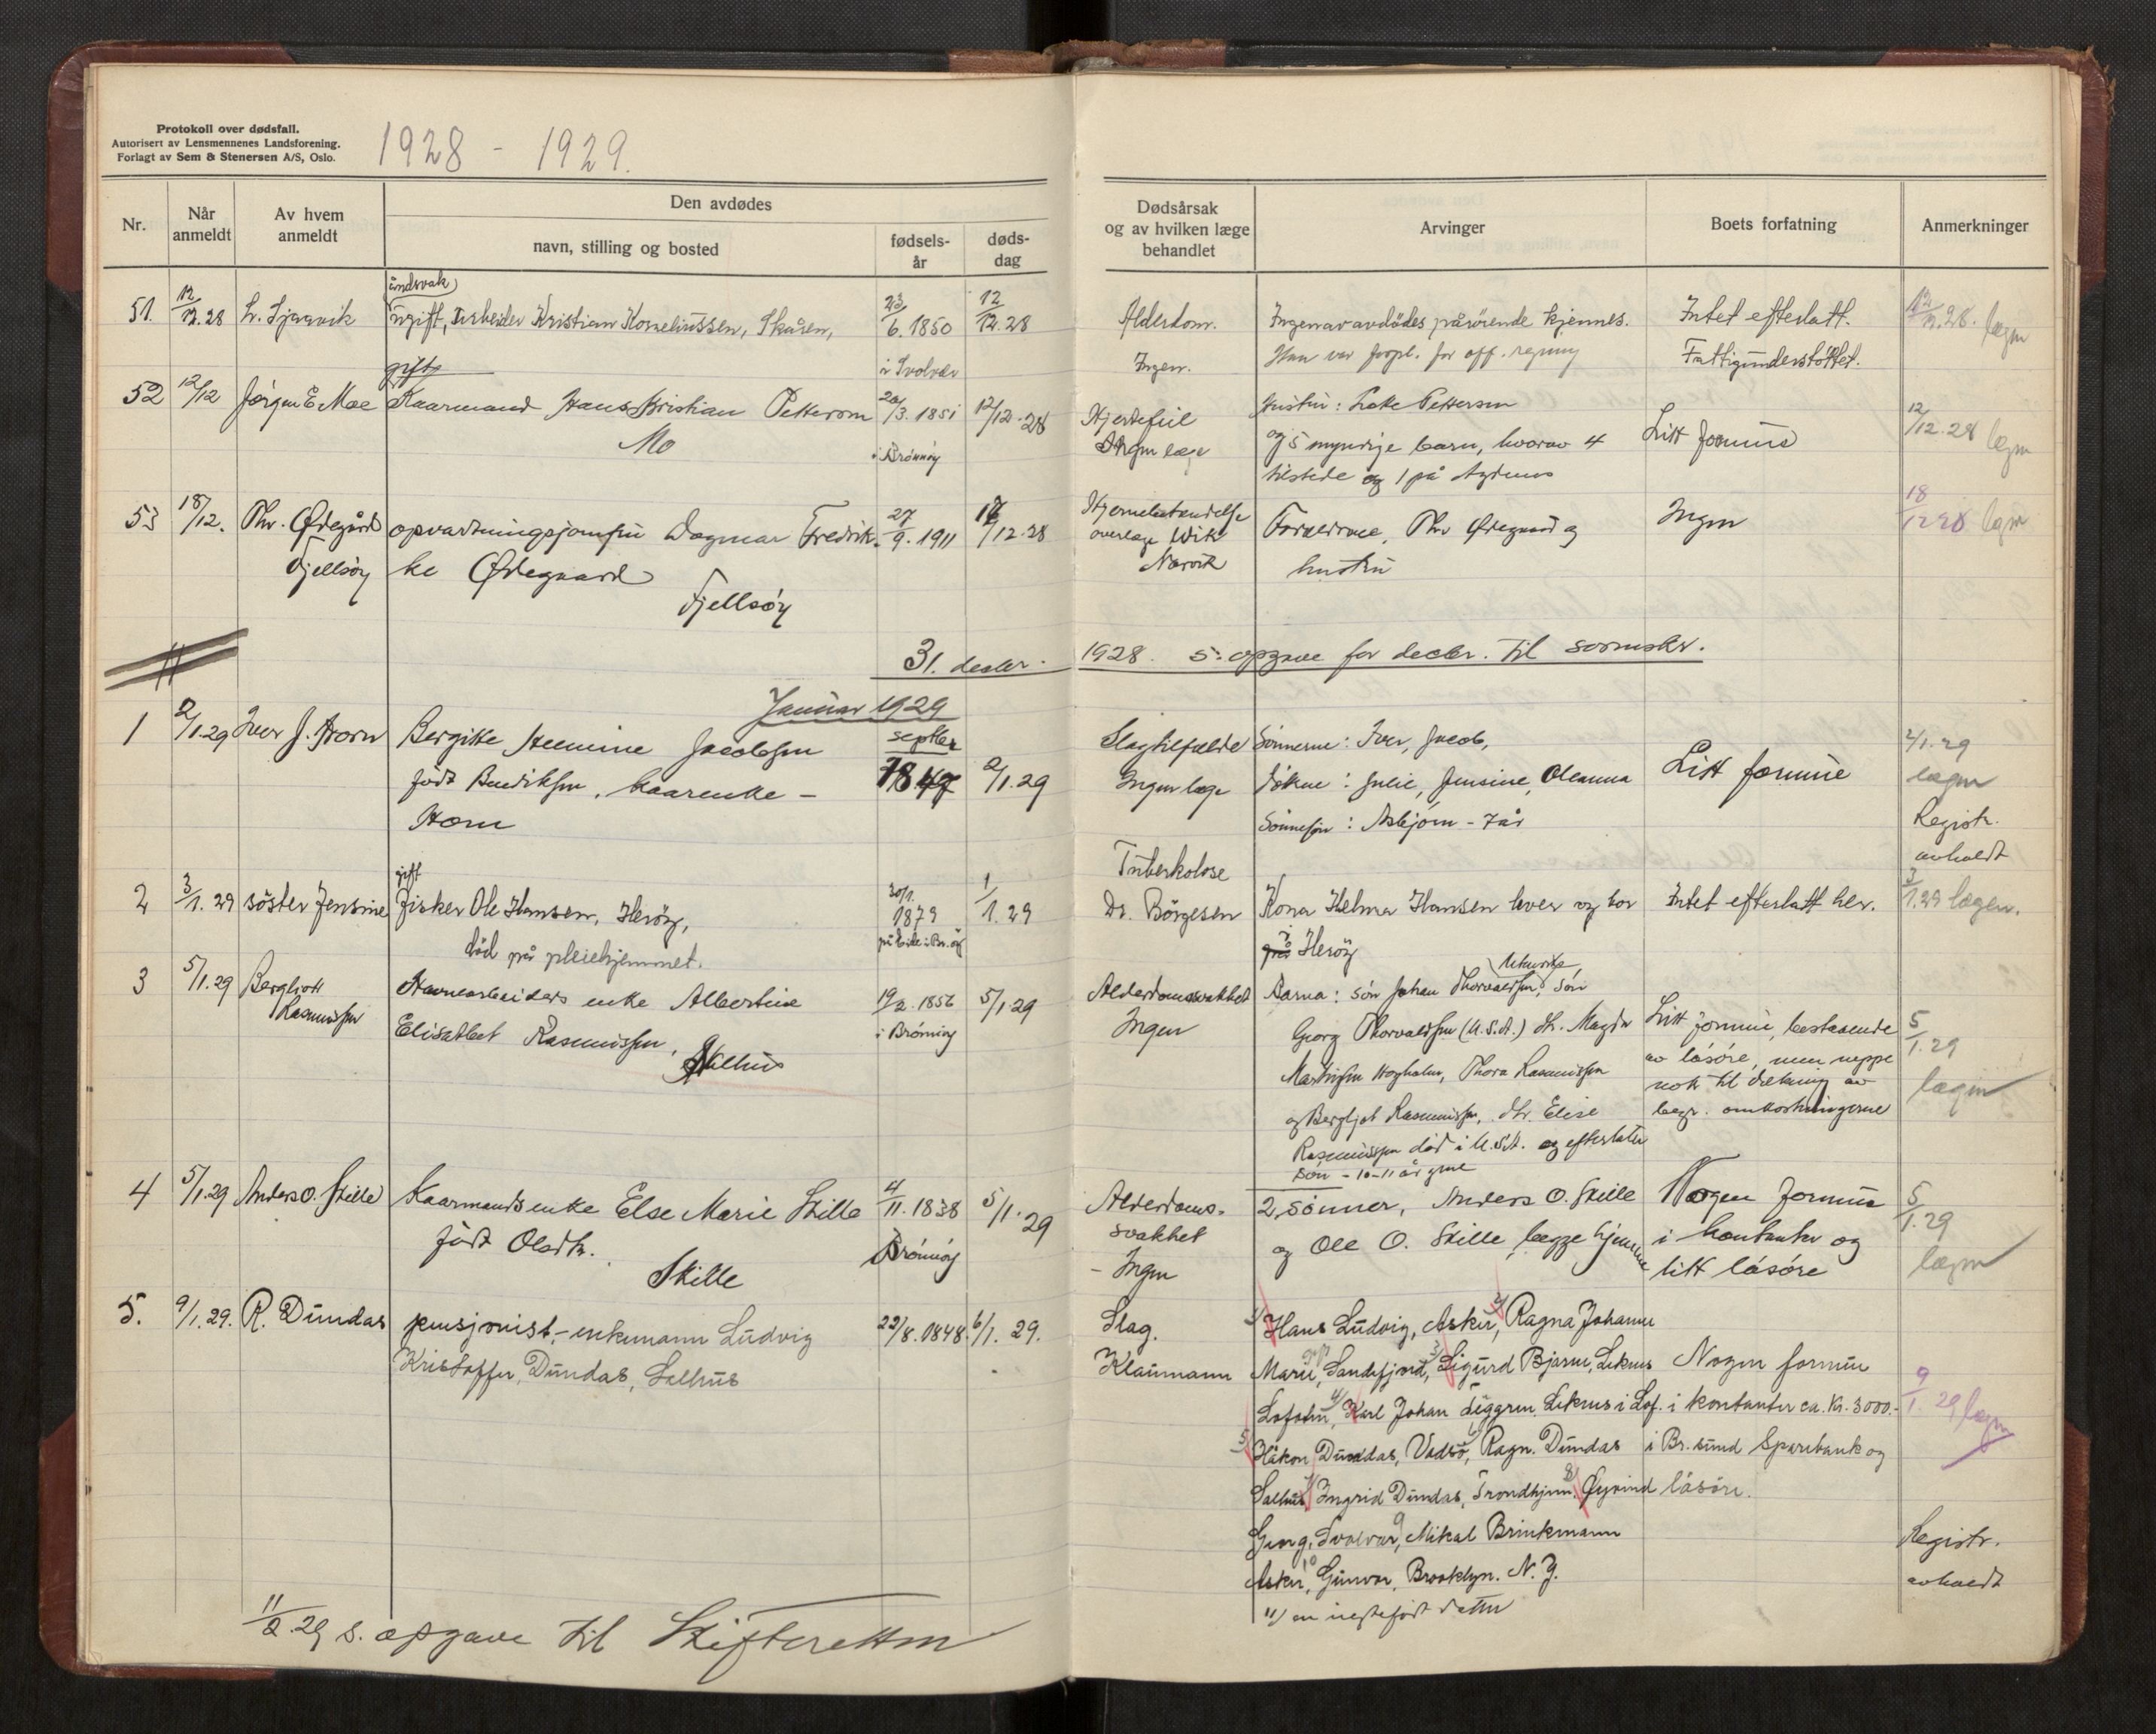 Protokoll over dødsfall.
Autorisert av Lensmennenes Landsforening.
Forlagt av Sem & Stenersen A/S, Oslo.
1928 - 1929.
Nr.
Når anmeldt
Av hvem anmeldt
Den avdødes
navn, stilling og bosted
fødsels-år
døds-dag
Dødsårsak og av hvilken læge behandlet
Arvinger
Boets forfatning
Anmerkninger
åndsvak
51. 12/12.28 ugift, Arbeider Kristian Korneliussen, 23/6.1850 12/12.28
i Svolvær
Alderdom.
Ingen.
Ingen av avdødes pårørende kjennes.
Han var forpl. for off. regning
Intet efterlatt.
Fattigunderstøttet.
12/12.28. lægm
gift
52 12/12 Jørgen E. Moe Kaarmand Hans Kristian Pettersen 20/3.1851 12/12.28
Mo
i Brønnøy
Hjertefeil
Ingen læge
Hustru: Pettersen
og 5 myndige barn, hvorav 4
tilstede og 1 på
Litt formue
12/12.28 lægm
53 18/12. Thv. Ødegård opvartningsjomfru Dagmar Fredrik- 27/9.1911 /12.28
Fjellsøy ke Ødegaard
Fjellsøy
Hjernebetændelse
overlæge Wik
Narvik
Forældrene, Thv Ødegaard og
hustru
Ingen
18/12 28 lægm
31. decbr. 1928. s. opgave for decbr. til sorenskr.
Januar 1929
1 2/1.29 Iver J. Horn Bergitte Jacobsen septbr
født Bendiksen, kaarenke - 1847 2/1.29
Horn
Slagtilfælde
Ingen læge
Sønnerne: Iver, Jacob,
døtrene: Julie, Jensine, Oleanna
Sønnesøn: Asbjørn - 7 år
Litt formue
2/1.29
lægm
Registr.
avholdt
gift
2 3/1.29 søster Jensine Fisker Ole Hansen, Herøy, 30/1. 1879 1/1.29
død på pleiehjemmet.
Tuberkolose
Dr. Börgesen
Kona Helma Hansen lever og bor
i Herøy
Intet efterlatt her.
3/1.29 lægm.
3 5/1.29 Bergliott Rasmussen Havnearbeiders enke Albertine 19/2.1856 5/1.29
Elisabet Rasmussen, Salhus
i Brønnøy
Alderdomssvakhet
Ingen
Barna: søn Johan Thorvaldsen, søn
Georg Thorvaldsen (U.S.A.) dt. Magda
Thora Rasmussen
og Bergljot Rasmussen, dtr. Elise
Rasmussen død i U.S.A. og efterlater
søn - 10-11 år gml
Litt formue, bestaaende
av løsøre, men neppe
nok til dækning av
begr. omkostningerne
5/1.29
lægm
4 5/1.29 Anders O. Skille Kaarmands enke Else Marie Skille 4/11.1838 5/1.29
født Olsdtr.
Skille
Brønnøy
Alderdoms-
svakhet
- Ingen
2 sønner, Anders O. Skille
og Ole O. Skille, begge hjemme
Nogen formue
i kontanter og
litt løsøre
5/1.29
lægm
5. 9/1.29. R. Dundas pensjonist, - enkemann Ludvig 22/8.1848. 6/1.29.
Kristoffer Dundas, Salhus
Slag.
Klaumann
1/ Hans Ludvig, Asker, 2/ Ragna Johanne
Marie, Sandefjord, 3/ Sigurd Bjarne, Leknes
Lofoten, 4/ Karl Johan Leknes i Lof.
5/ Håkon Dundas, Vadsø, 6/ Ragn. Dundas
Salhus, 7/ Ingrid Dundas, Trondhjem. 8/ Øyvind
Georg, Svolvær, 9 Mikal Brinkmann
Asker, 10 Gunvor, Brooklyn. N.Y.
11/ en uegtefødt datter
Nogen formue
i kontanter ca. Kr. 3000.-
i Br.sund Sparebank og
løsøre.
9/1.29 lægm
Registr.
avholdt
11/2.29 s. opgave til Skifteretten